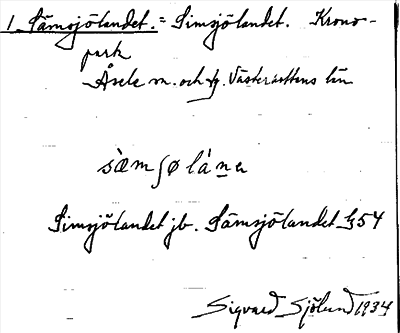 1 Sämsjölandet. = Simsjölandet. Krono-
park
Åsele sn. och tg. Västerbottens län
sæ̀mʃø lánɐ
Simsjölandet jb. Sämsjölandet G 54
Sigvard Sjölund 1934